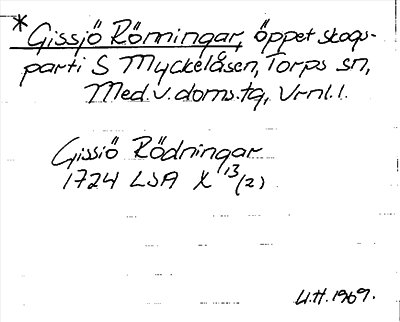 * Gissjö Rönningar, öppet skogs-
parti S Myckelåsen, Torps sn,
Med.v.doms.tg, Vrnl.l.
Gissiö Rödningar
1724 LSA X 13/(2)
U.H. 1969.